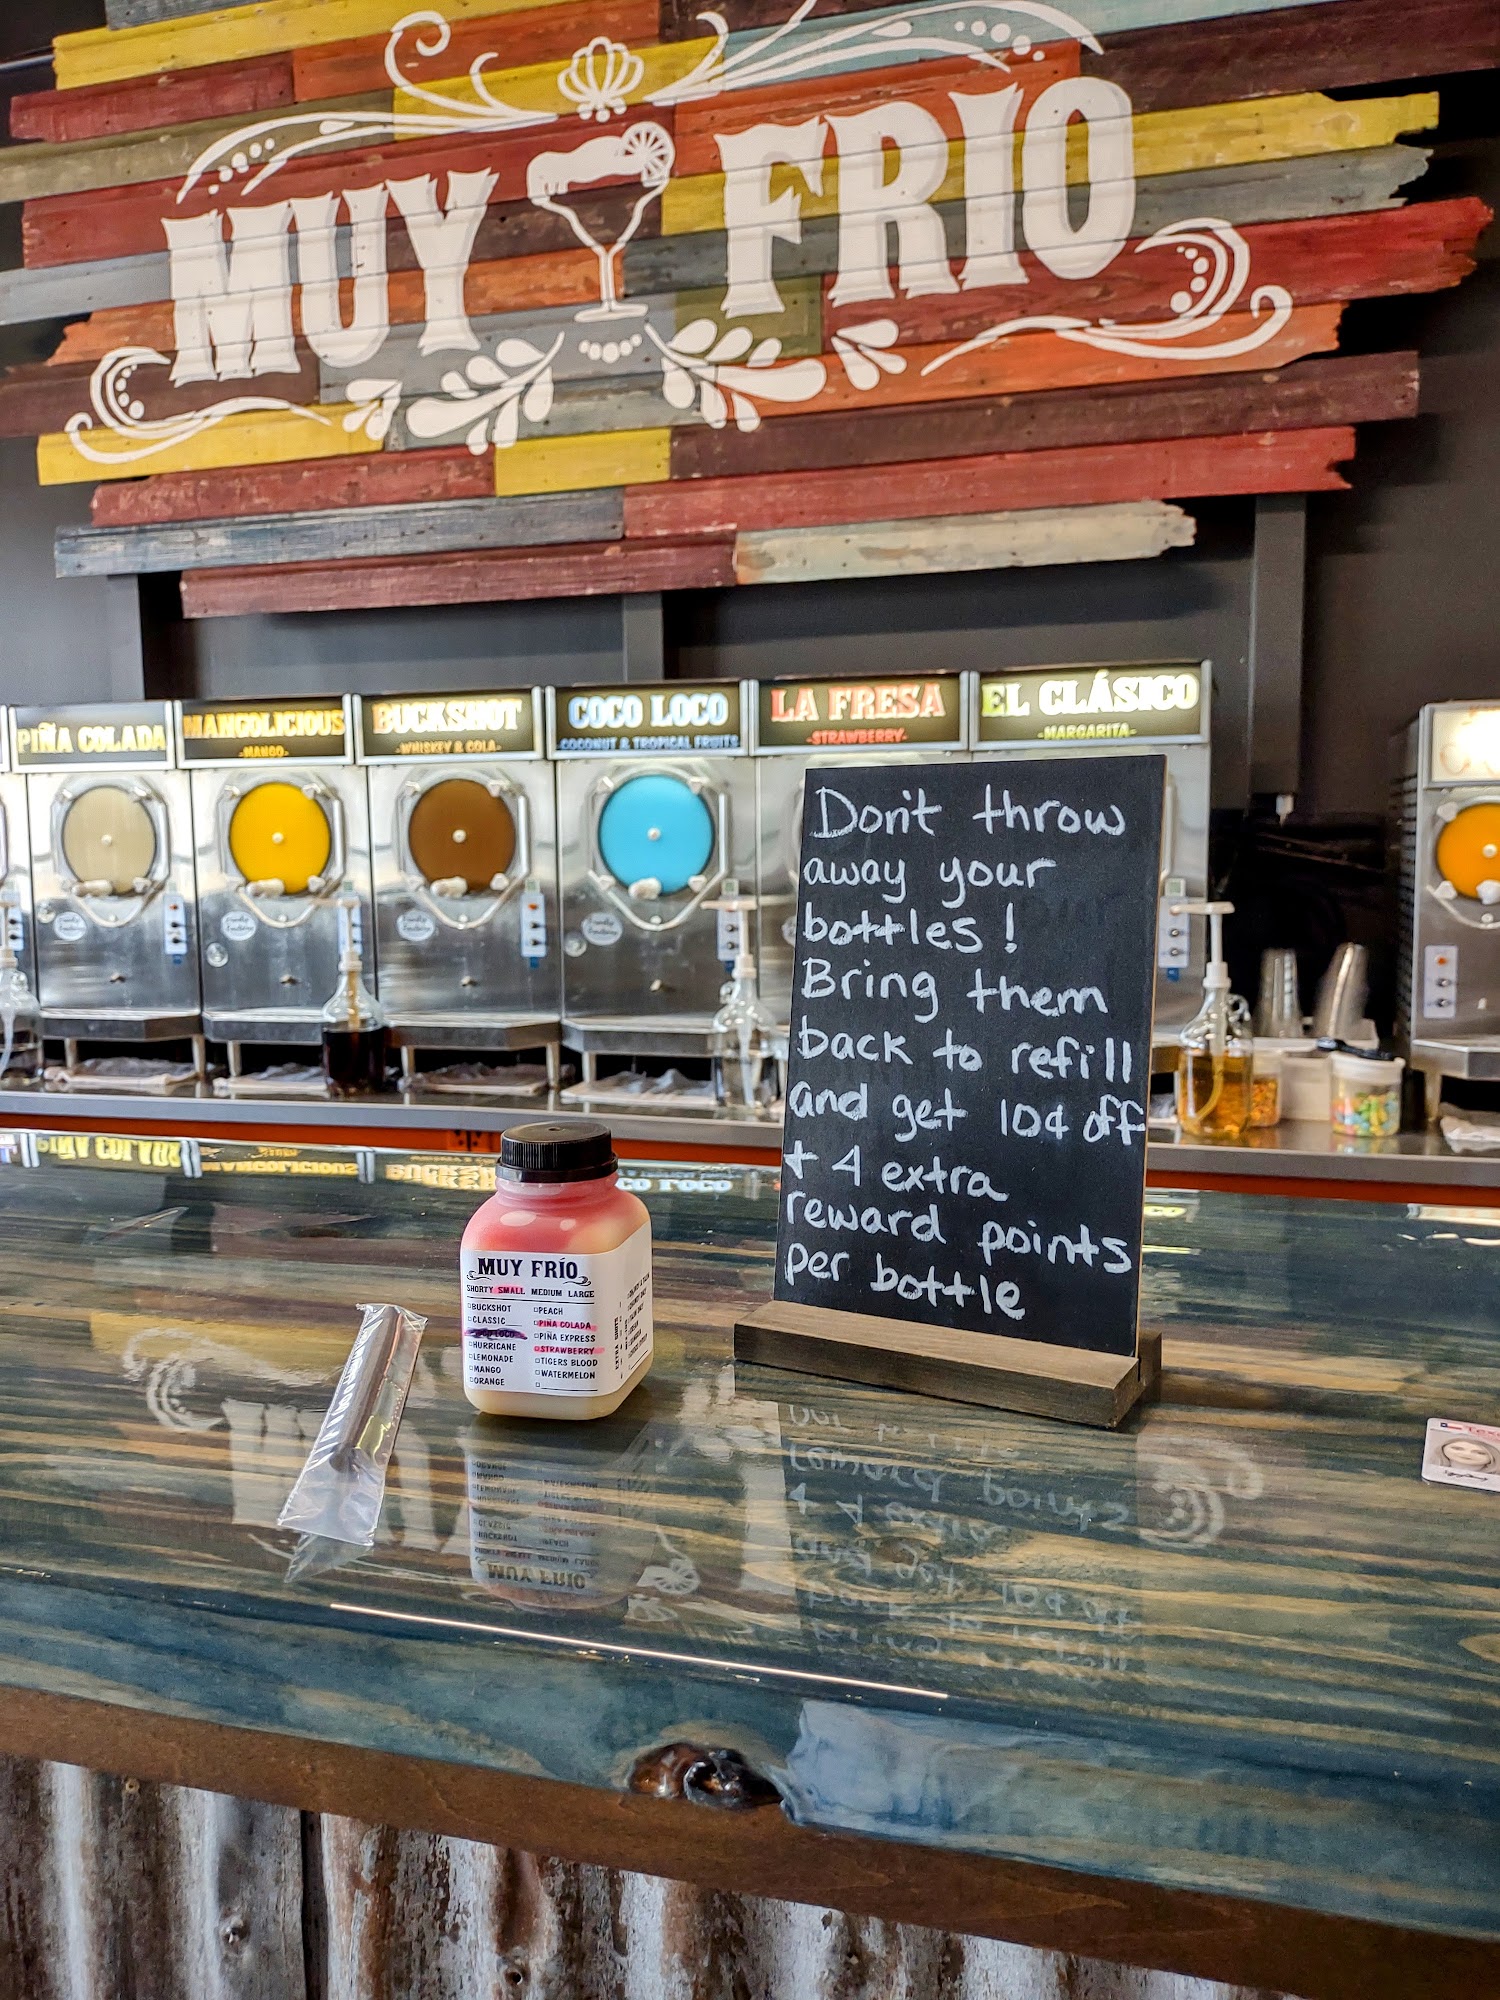 MUY FRIO
PIÑA COLADA
MANGOLICIOUS
-MANGO-
BUCKSHOT
-WHISKEY & COLA-
COCO LOCO
COCONUT & TROPICAL FRUITS
LA FRESA
-STRAWBERRY-
EL CLÁSICO
-MARGARITA-
Don't throw
away your
bottles!
Bring them
back to refill
and get 10¢ off
+ 4 extra
reward points
per bottle
MUY FRÍO
SHORTY SMALL MEDIUM LARGE
BUCKSHOT
CLASSIC
COCO LOCO
HURRICANE
LEMONADE
MANGO
ORANGE
PEACH
PIÑA COLADA
PIÑA EXPRESS
STRAWBERRY
TIGERS BLOOD
WATERMELON
EXTRA SHOTS